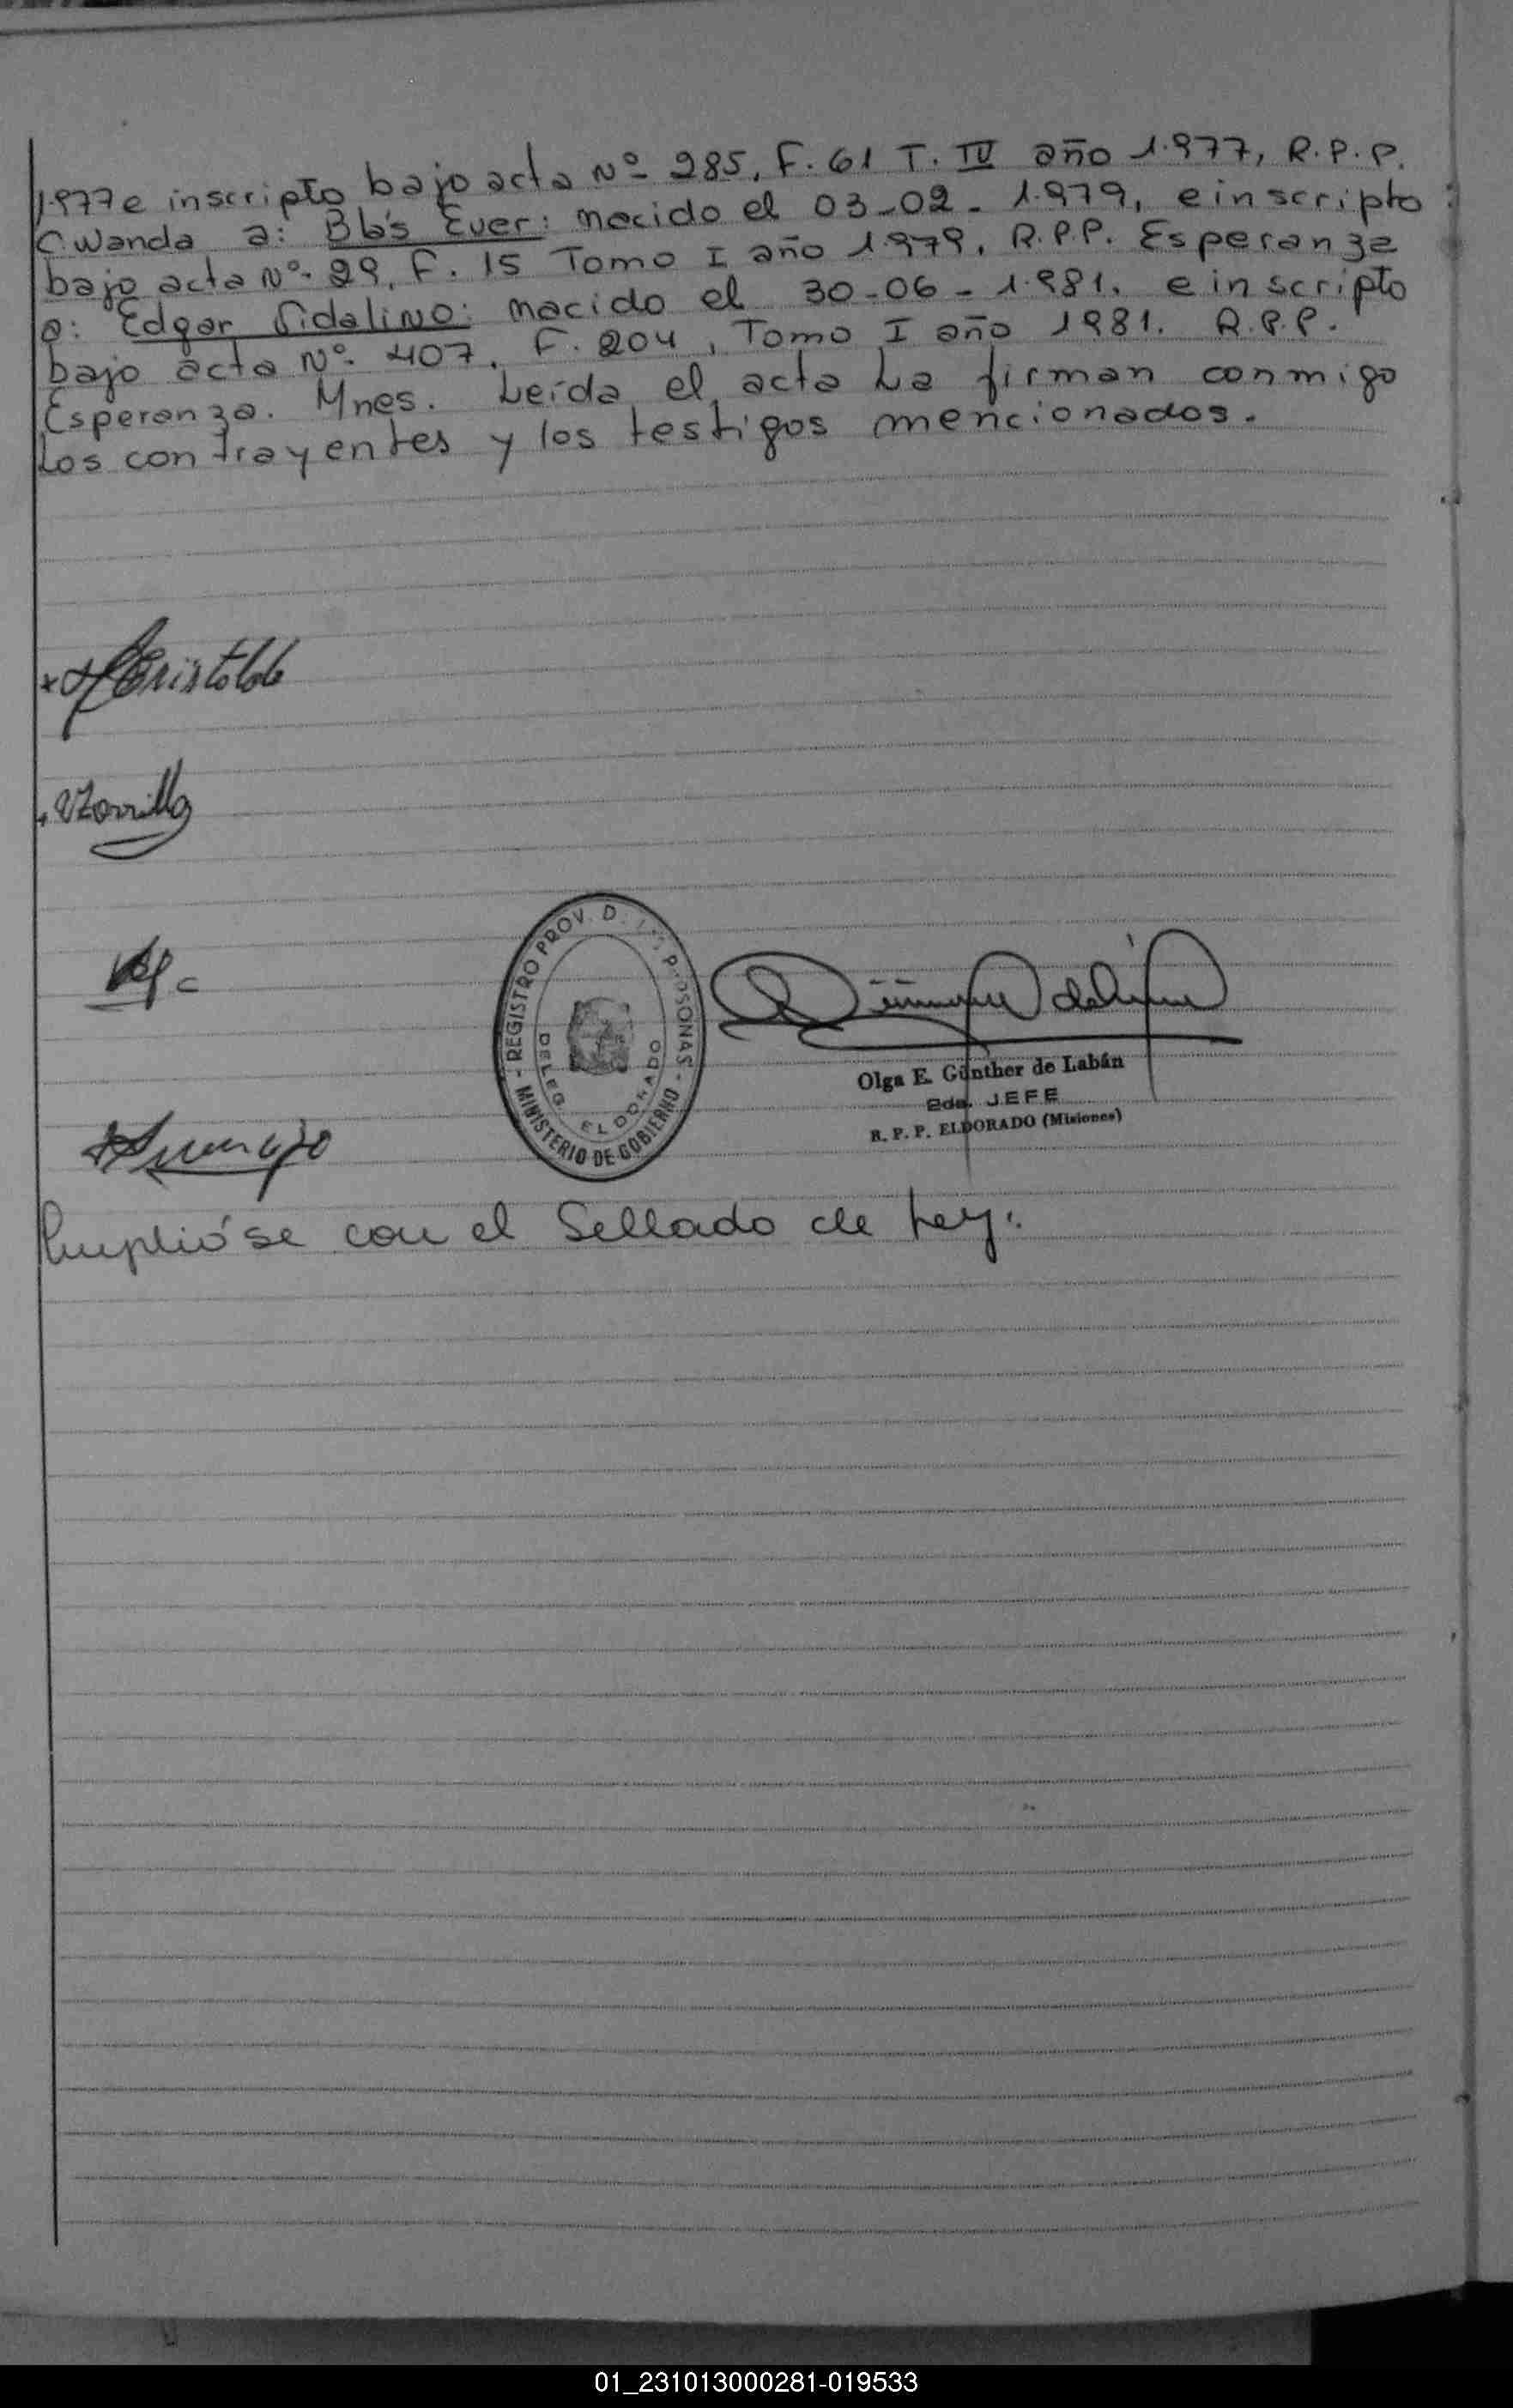 1.977 e inscripto bajo acta Nº 285, F. 61 T. IV año 1.977, R.P.P.
C. Wanda a: Blas Ever: nacido el 03-02-1.979, e inscripto
bajo acta Nº 29, F. 15 Tomo I año 1.979, R.P.P. Esperanza
a: Edgar Fidelino: nacido el 30-06-1.981, e inscripto
bajo acta Nº 407, F. 204, Tomo I año 1981. R.P.P.
Esperanza. Mnes. Leída el acta La firman conmigo
Los contrayentes y los testigos mencionados.
REGISTRO PROV. D
MINISTERIO DE GOBIERNO
DELEG. ELDORADO
Olga E. Günther de Labán
2da. JEFE
R. P. P. ELDORADO (Misiones)
Cumplióse con el Sellado de Ley.
01_231013000281-019533